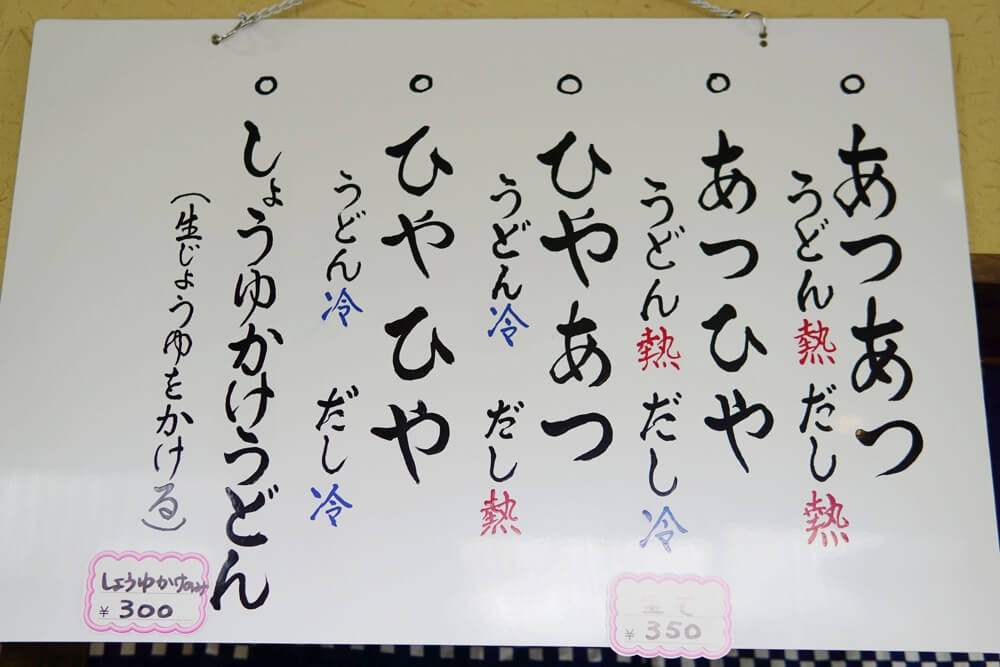 ○あつあつ
うどん熱 だし熱
○あつひや
うどん熱 だし冷
○ひやあつ
うどん冷 だし熱
○ひやひや
うどん冷 だし冷
○しょうゆかけうどん
(生じょうゆをかける)
¥350
しょうゆかけのみ
¥300